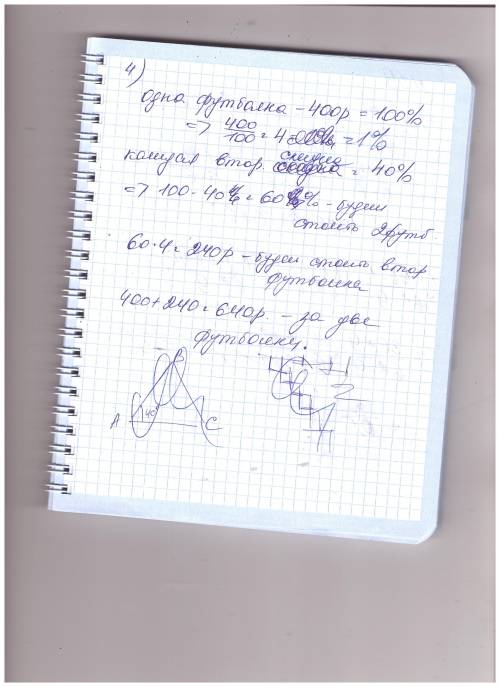 4)
одна футболка - 400р = 100%
=> 400/100 = 4 = 1%
втор. скидка = 40%
=> 100 - 40% = 60% - будет
стоить 2 футб.
60·4 = 240р - будет стоить втор.
футболка
400+240=640р. - за две
футболки.
A 40° C